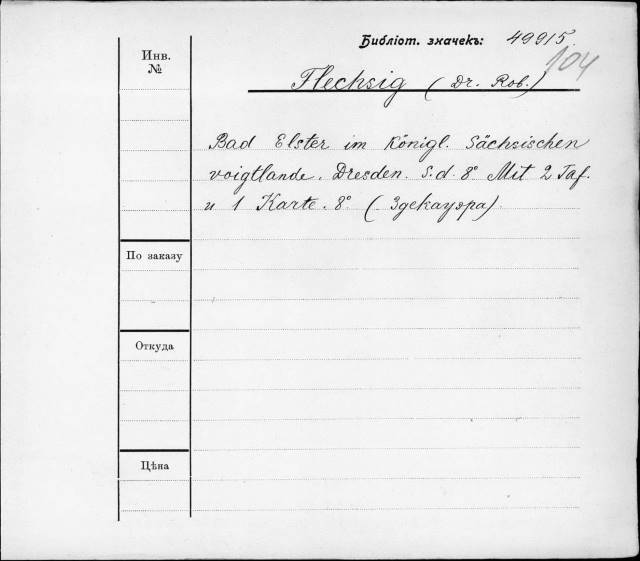 Библіот. значекъ: 49915
104
Инв.
№
Flechsig (Dr. Rob.)
Bad Elster im Königl. Sächsischen
Voigtlande. Dresden. S. d. 8° Mit 2 Taf.
u 1 Karte. 8° (Здекауэра).
По заказу
Откуда
Цѣна